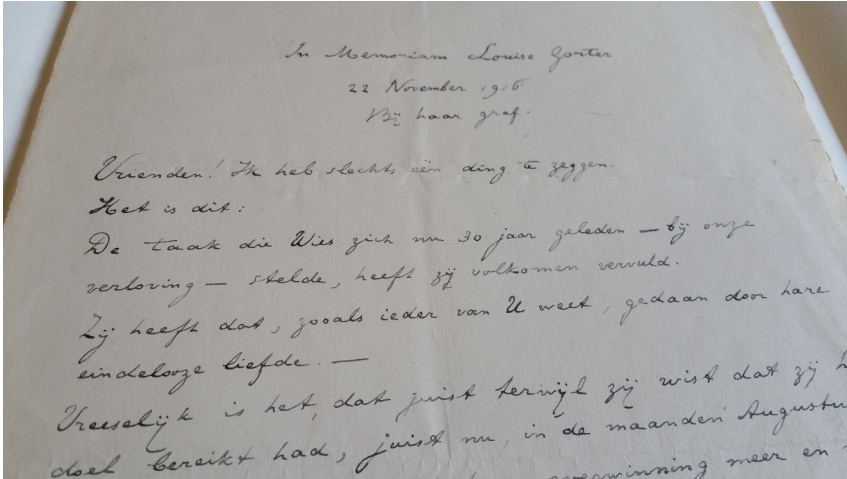 In Memoriam Louise Gorter
22 November 1916
Bij haar graf.
Vrienden! Ik heb slechts één ding te zeggen.
Het is dit:
De taak die Wies zich nu 30 jaar geleden — bij onze
verloving — stelde, heeft zij volkomen vervuld.
Zij heeft dat, zooals ieder van U weet, gedaan door hare
eindelooze liefde. —
Vreeselijk is het, dat juist terwijl zij wist dat zij
doel bereikt had, juist nu, in de maanden Augustu
overwinning meer en